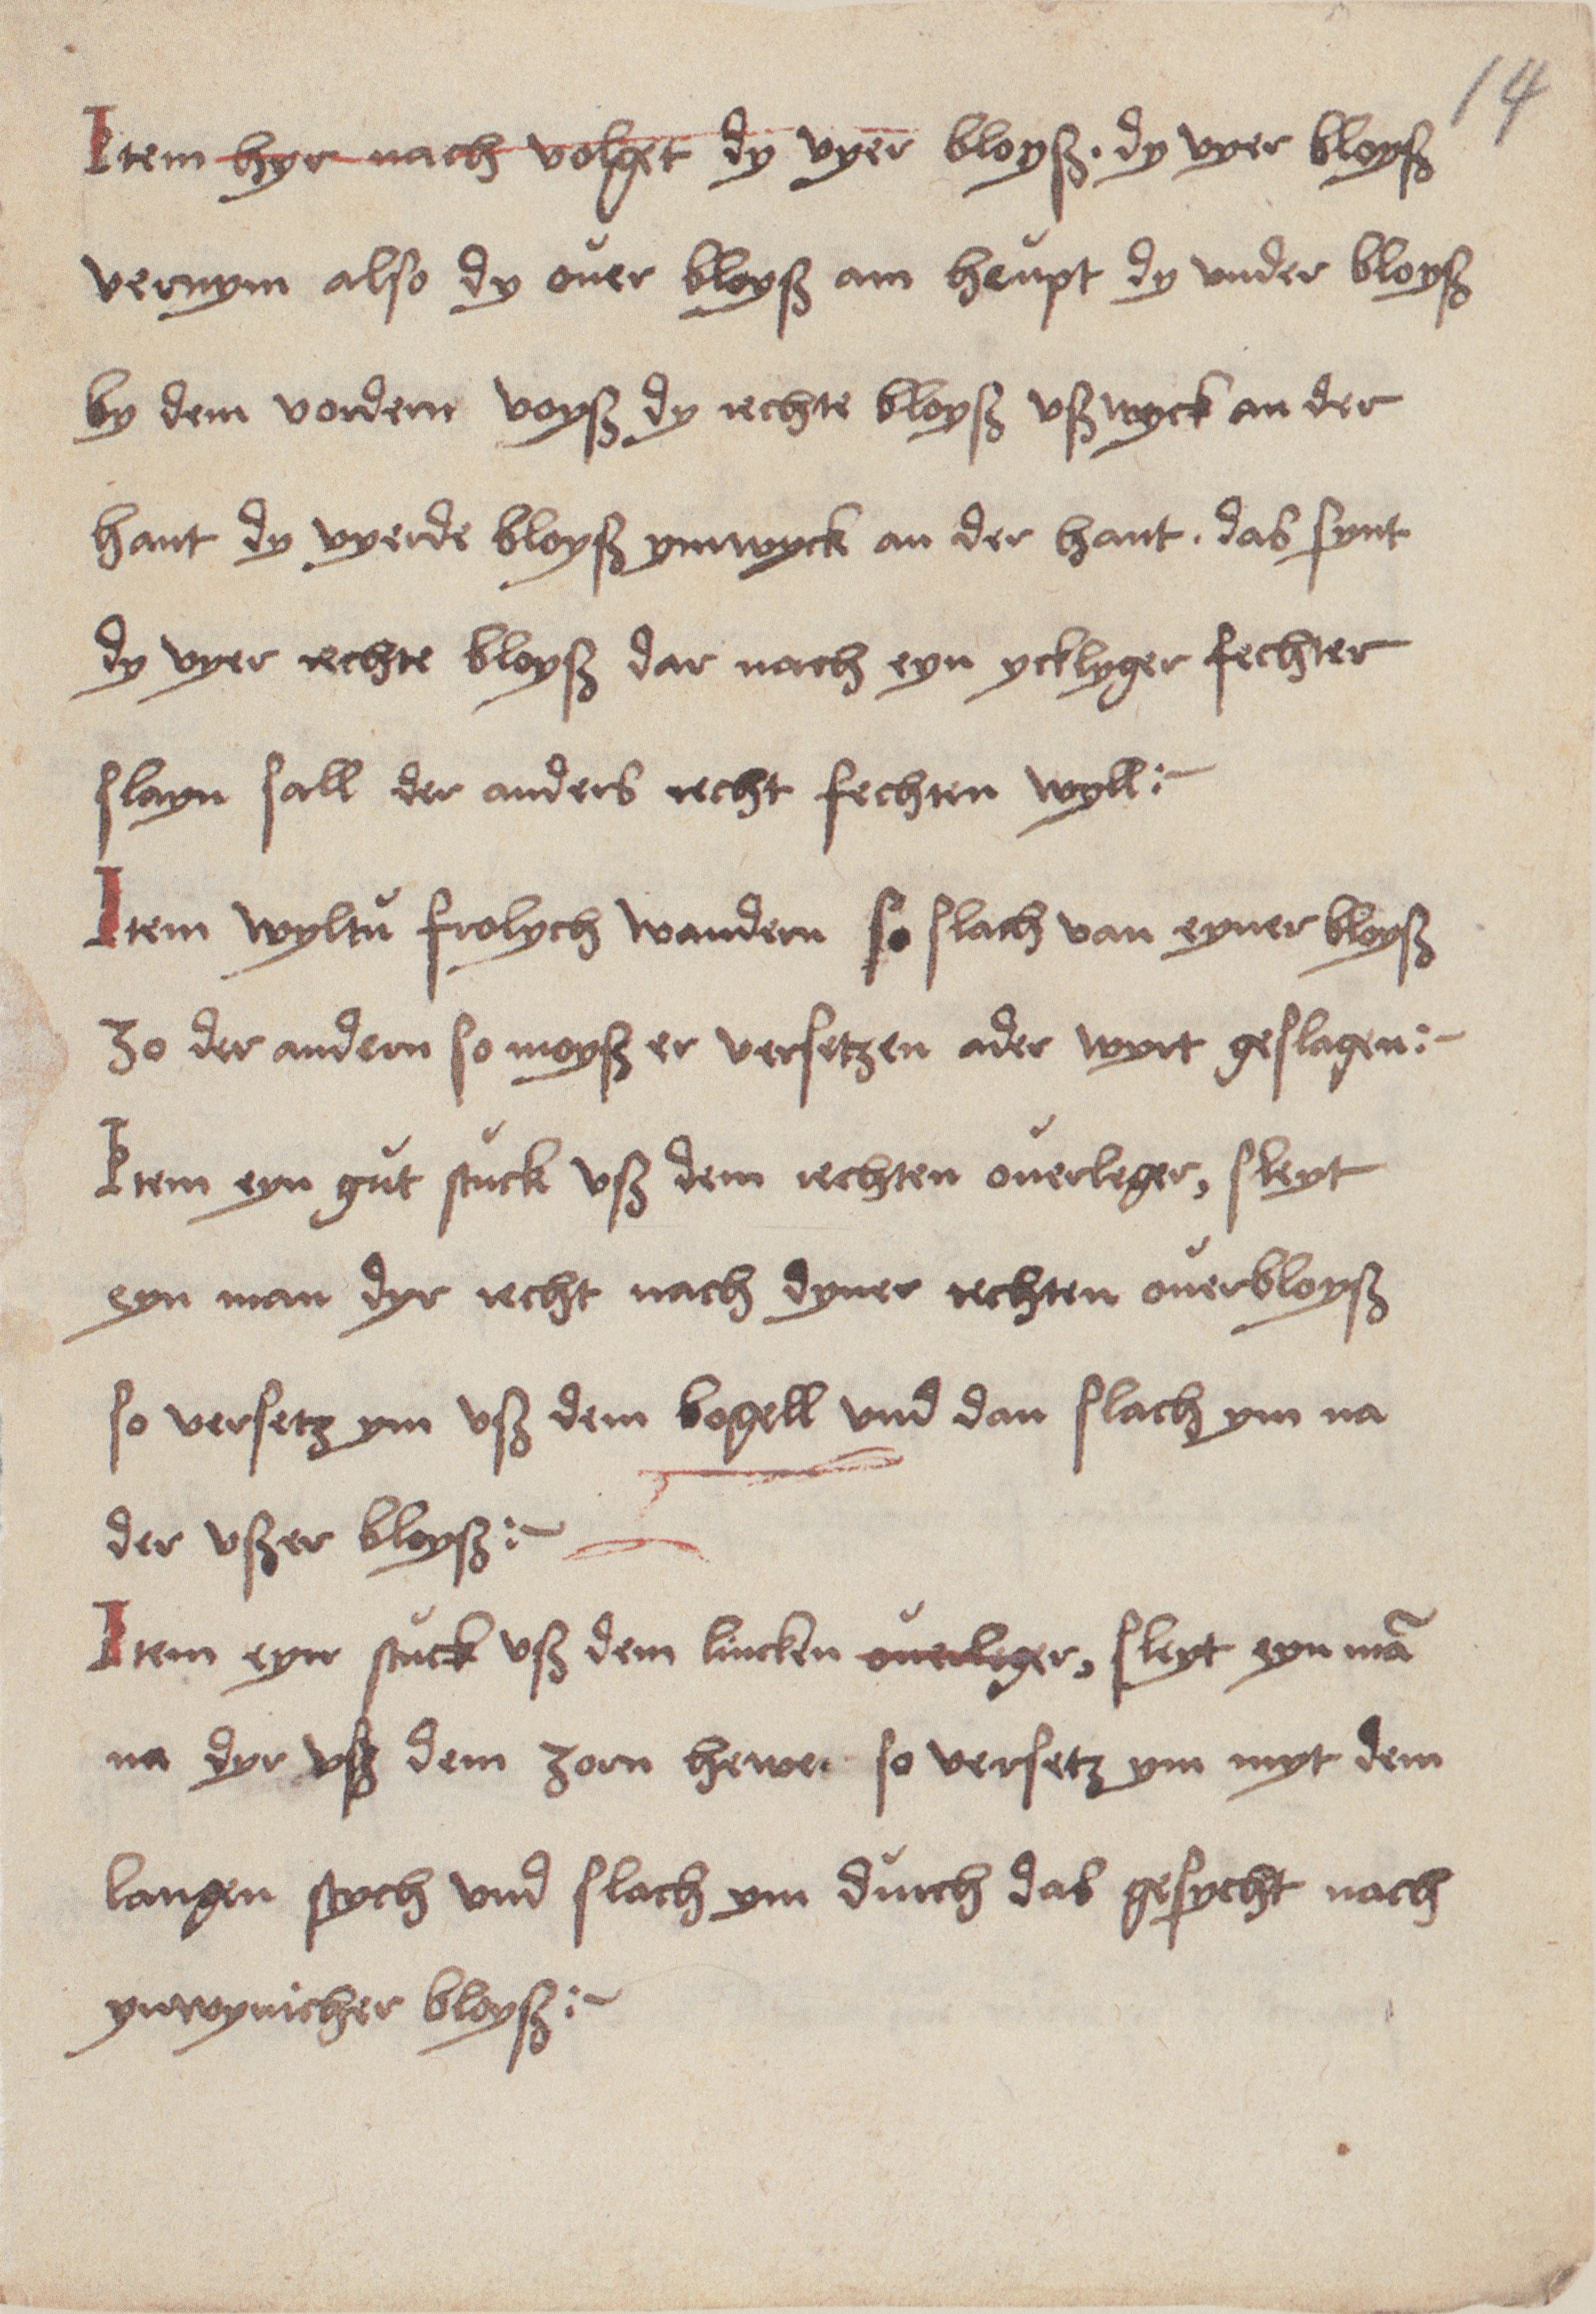 14
Item hyr nach volget dy vyer bloyß. dy vyer bloyß
vernym also dy ouer bloyß am heupt dy vnder bloyß
by dem vordern voyß dy rechte bloyß vßwyck an der
hant dy vyerde bloyß ynwyck an der hant. das synt
dy vyer rechte bloyß dar nach eyn ycklyger fechter
slayn sall der anders recht fechten wyll :~
Item wyltu frolych wandern so slach van eyner bloyß
zo der andern so moyß er versetzen ader wyrt geslagen :~
Item eyn gut stuck vß dem rechten ouerleger, sleyt
eyn man dyr recht nach dyner rechten ouerbloyß
so versetz ym vß dem bogell vnd dan slach ym na
der vßer bloyß :~
Item eyn stuck vß dem lincken ouerleger, sleyt eyn mā
na dyr vß dem zorn hewe. so versetz ym myt dem
langen stych vnd slach ym durch das gesycht nach
ynwynicher bloyß :~